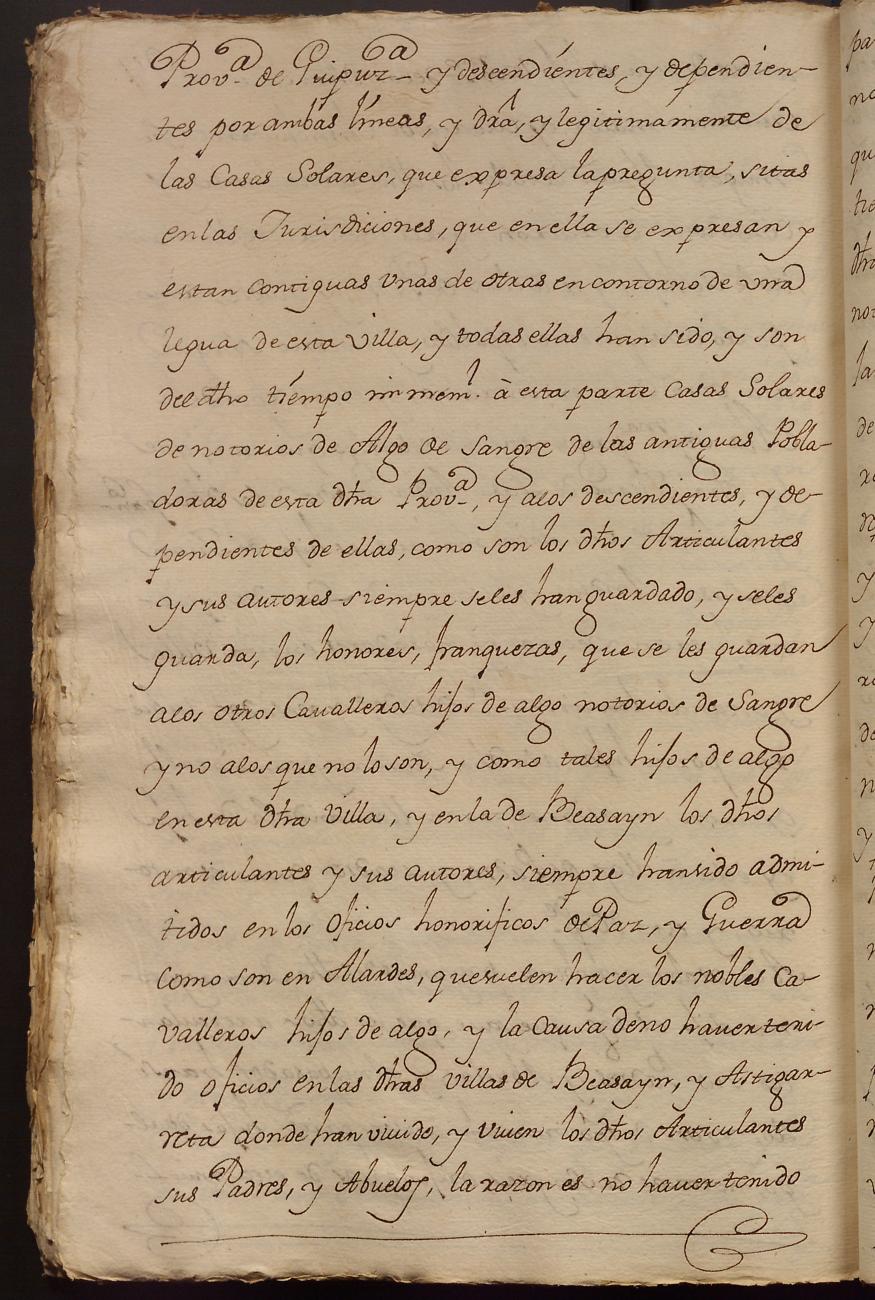 Prov.ª de Guipuzª y descendientes, y dependien-
tes por ambas líneas, y dra, y legitimamente de
las Casas Solares, que expresa la pregunta, sitas
en las Jurisdiciones, que en ella se expresan y
estan contiguas unas de otras en contorno de una
legua de esta villa, y todas ellas han sido, y son
del dho tiempo inmeml. à esta parte Casas Solares
de notorios de Algo de sangre de las antiguas Pobla-
doras de esta dha Prov.ª, y alos descendientes, y de-
pendientes de ellas, como son los dhos Articulantes
y sus autores siempre seles han guardado, y seles
guarda, los honores, franquezas, que se les guardan
alos otros Cavalleros hijos de algo notorios de Sangre
y no alos que no lo son, y como tales hijos de algo
en esta dha villa, y en la de Beasayn los dhos
articulantes y sus autores, siempre han sido admi-
tidos en los oficios honorificos de Paz, y Guerra
como son en Alardes, que suelen hacer los nobles Ca-
valleros hijos de algo, y la causa de no haver teni-
do oficios en las dhas villas de Beasayn, y Astigar-
reta donde han vivido, y viven los dhos Articulantes
sus Padres, y Abuelos, la razon es no haver tenido